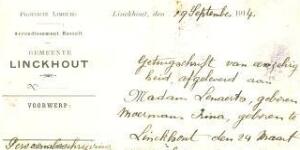 PROVINCIE LIMBURG
Arrondissement Hasselt
GEMEENTE
LINCKHOUT
VOORWERP:
Linckhout, den 19 September 1914.
Getuigschrift van
heid, afgeleverd aan
Madam Lenaerts, geboren
Moermans Rina, geboren te
Linckhout den 24 Maart